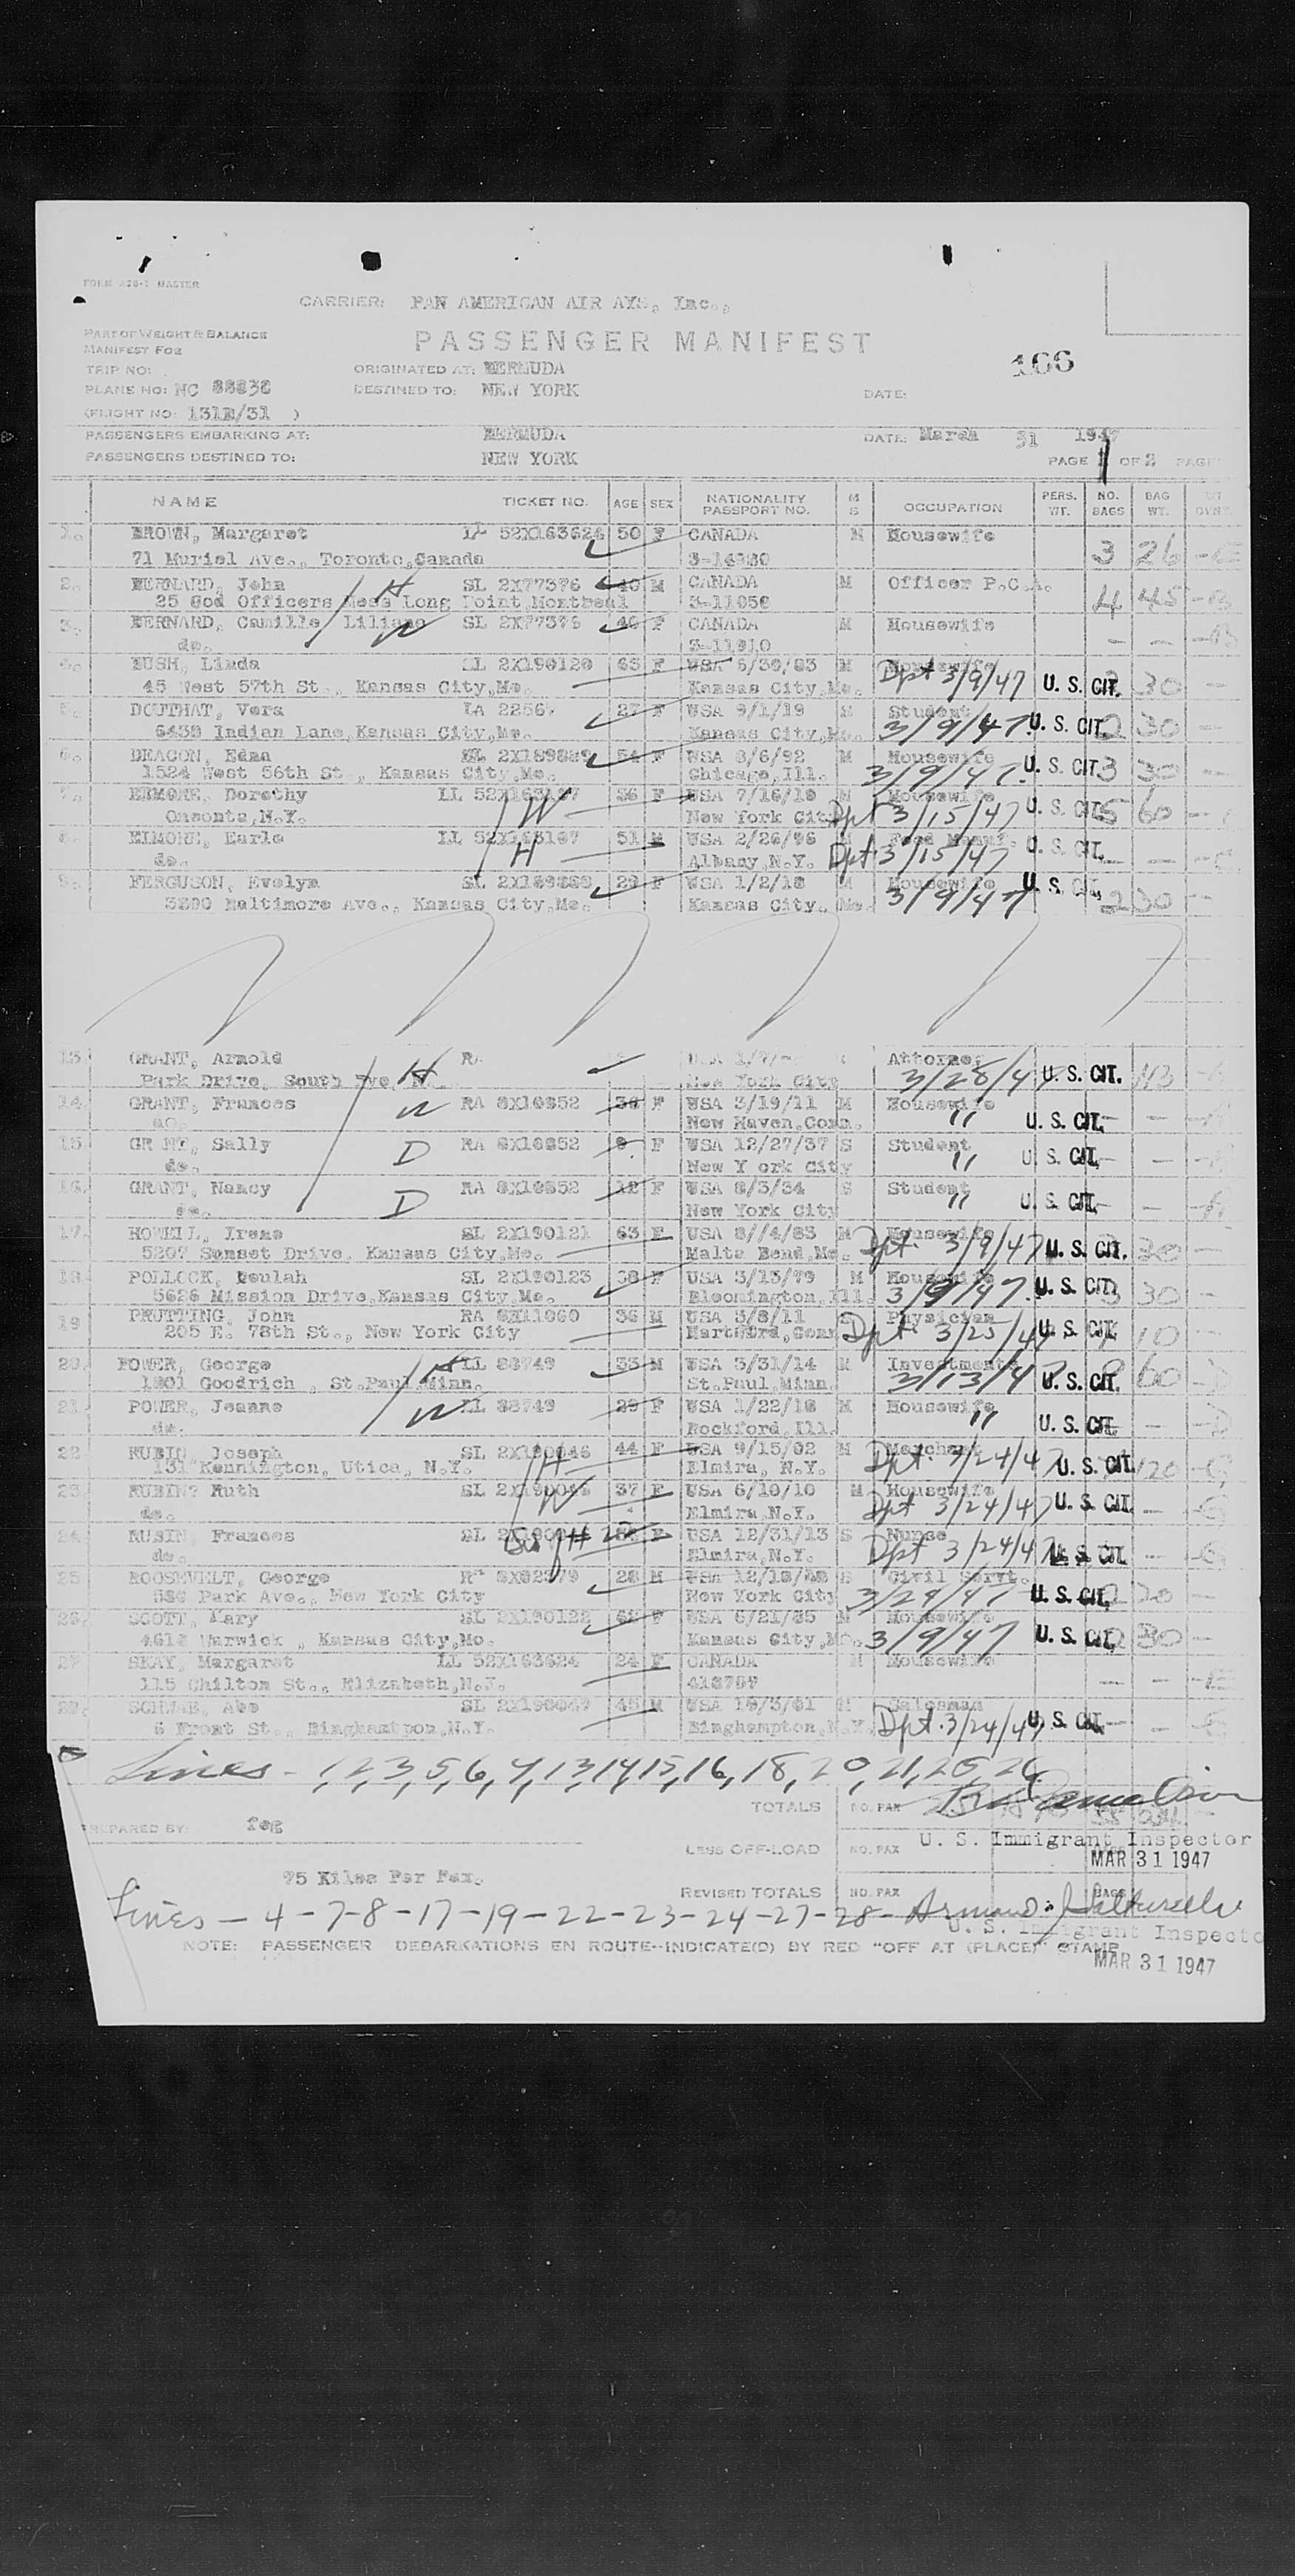 FORM 430-1 MASTER
CARRIER: PAN AMERICAN AIR AYS, Inc.,
PART OF WEIGHT & BALANCE
MANIFEST FOR
PASSENGER MANIFEST
166
TRIP NO: ORIGINATED AT: BERMUDA
PLANE NO: NC 88838 DESTINED TO: NEW YORK DATE:
(FLIGHT NO: 131B/31 )
PASSENGERS EMBARKING AT: BERMUDA DATE: March 31 1947
PASSENGERS DESTINED TO: NEW YORK
PAGE 1 OF 2 PAGE
NAME TICKET NO. AGE SEX NATIONALITY PASSPORT NO. M S OCCUPATION PERS. WT. NO. BAGS BAG WT.
1. BROWN, Margaret 52X163624 50 F CANADA M Housewife
71 Muriel Ave., Toronto,Canada 3-14980 3 26
2. BERNARD, John H SL 2X77376 40 M CANADA M Officer P.C.A.
25 God Officers Mess Long Point,Montreal 3-11058 4 45
3. BERNARD, Camille Liliane W SL 2X77376 40 F CANADA M Housewife
do. 3-11910
4. BUSH, Linda SL 2X190120 63 F USA 6/30/83 M Housewife
45 West 57th St., Kansas City,Mo. Kansas City,Mo. Dpt 3/9/47 U. S. CIT. 30
5. DOUTHAT, Vera LA 22567 27 F USA 9/1/19 M Student
6438 Indian Lane,Kansas City,Mo. Kansas City,Mo. 3/9/47. U. S. CIT. 2 30
6. DEACON, Edna SL 2X189889 54 F USA 8/6/92 M Housewife
1524 West 56th St., Kansas City,Mo. Chicago,Ill. 3/9/47. U. S. CIT. 3 30
7. ELMORE, Dorothy LL 52X163167 W 36 F USA 7/16/10 M Housewife
Oneonta,N.Y. New York City Dpt 3/15/47 U. S. CIT. 5 60
8. ELMORE, Earle LL 52X163167 H 51 M USA 2/26/96 M
do. Albany,N.Y. Dpt. 3/15/47 U. S. CIT.
9. FERGUSON, Evelyn SL 2X189888 29 F USA 1/2/18 M Housewife
Baltimore Ave., Kansas City,Mo. Kansas City, Mo. 3/9/47 U. S. CIT. 2 30
13. GRANT, Arnold H RA Attorney
Park Drive, South Rye, N. New York City 3/28/47 U. S. CIT. 113
14. GRANT, Frances W RA 8X10852 36 F USA 3/19/11 M Housewife
do. New Haven,Conn. " U. S. CIT.
15. GR NT, Sally D RA 8X10852 9 F USA 12/27/37 S Student
do. New Y ork City " U. S. CIT.
16. GRANT, Nancy D RA 8X10852 12 F USA 8/3/34 S Student
do. New York City " U. S. CIT.
17. HOWELL, Irene SL 2X190121 63 F USA 8//4/83 M Housewife
5207 Sunset Drive, Kansas City,Mo. Malta Bend,Mo. Dpt. 3/9/47 U. S. CIT. 30
18. POLLOCK, Beulah SL 2X190123 38 F USA 3/13/79 M Housewife
5626 Mission Drive,Kansas City,Mo. Bloomington,Ill. 3/9/47. U. S. CIT. 3 30
19 PRUTTING, John RA 8X11060 36 M USA 3/8/11 S Physician
205 E. 78th St., New York City Hartford,Conn Dpt. 3/25/47 U. S. CIT. 1 10
20. POWER, George H LL 88749 33 M USA 3/31/14 M Investments
1801 Goodrich , St.Paul,Minn. St.Paul,Minn. 3/13/47 U. S. CIT. 60
21. POWER, Jeanne W LL 88749 29 F USA 1/22/18 M Housewife
do. Rockford,Ill. " U. S. CIT.
22 RUBIN, Joseph H SL 2X190046 44 F USA 9/15/02 M Merchant
131 Kennington, Utica, N.Y. Elmira, N.Y. Dpt. 3/24/47 U. S. CIT. 120
23. RUBIN? Ruth W SL 2X190046 37 F USA 6/10/10 M Housewife
do. Elmira,N.Y. Dpt 3/24/47 U. S. CIT.
24. RUBIN, Frances SL F USA 12/31/13 S Nurse
do. Elmira,N.Y. Dpt 3/24/47 U. S. CIT.
25 ROOSEVELT, George 28 M USA Civil Servt.
Park Ave., New York City New York City 3/29/47 U. S. CIT. 20
26. SCOTT, Mary SL 2X190122 F USA 6/21/85 M Housewife
4618 Warwick , Kansas City,Mo. Kansas City,Mo. 3/9/47 U. S. CIT. 30
27 SEAY, Margaret LL 52X163624 24 F CANADA M Housewife
115 Chilton St., Elizabeth,N.J.
28. SCHWAB, Abe SL 2X190047 45 M USA 10/3/01 M Salesman
6 Front St., Binghamtpon,N.Y. Binghampton,N.Y. Dpt. 3/24/47 U. S. CIT.
Lines - 1, 2, 3, 5, 6, 9, 13, 14, 15, 16, 18, 20, 21, 25, 26.
TOTALS NO. PAX
PREPARED BY: feg
U. S. Immigrant Inspector
LESS OFF-LOAD NO. PAX
MAR 31 1947
75 Kilos Per Pax.
REVISED TOTALS NO. PAX BAGS
Lines - 4 - 7 - 8 - 17 - 19 - 22 - 23 - 24 - 27 - 28 -
U. S. Immigrant Inspecto
NOTE: PASSENGER DEBARKATIONS EN ROUTE--INDICATE(D) BY RED "OFF AT (PLACE)" STAMP
MAR 31 1947